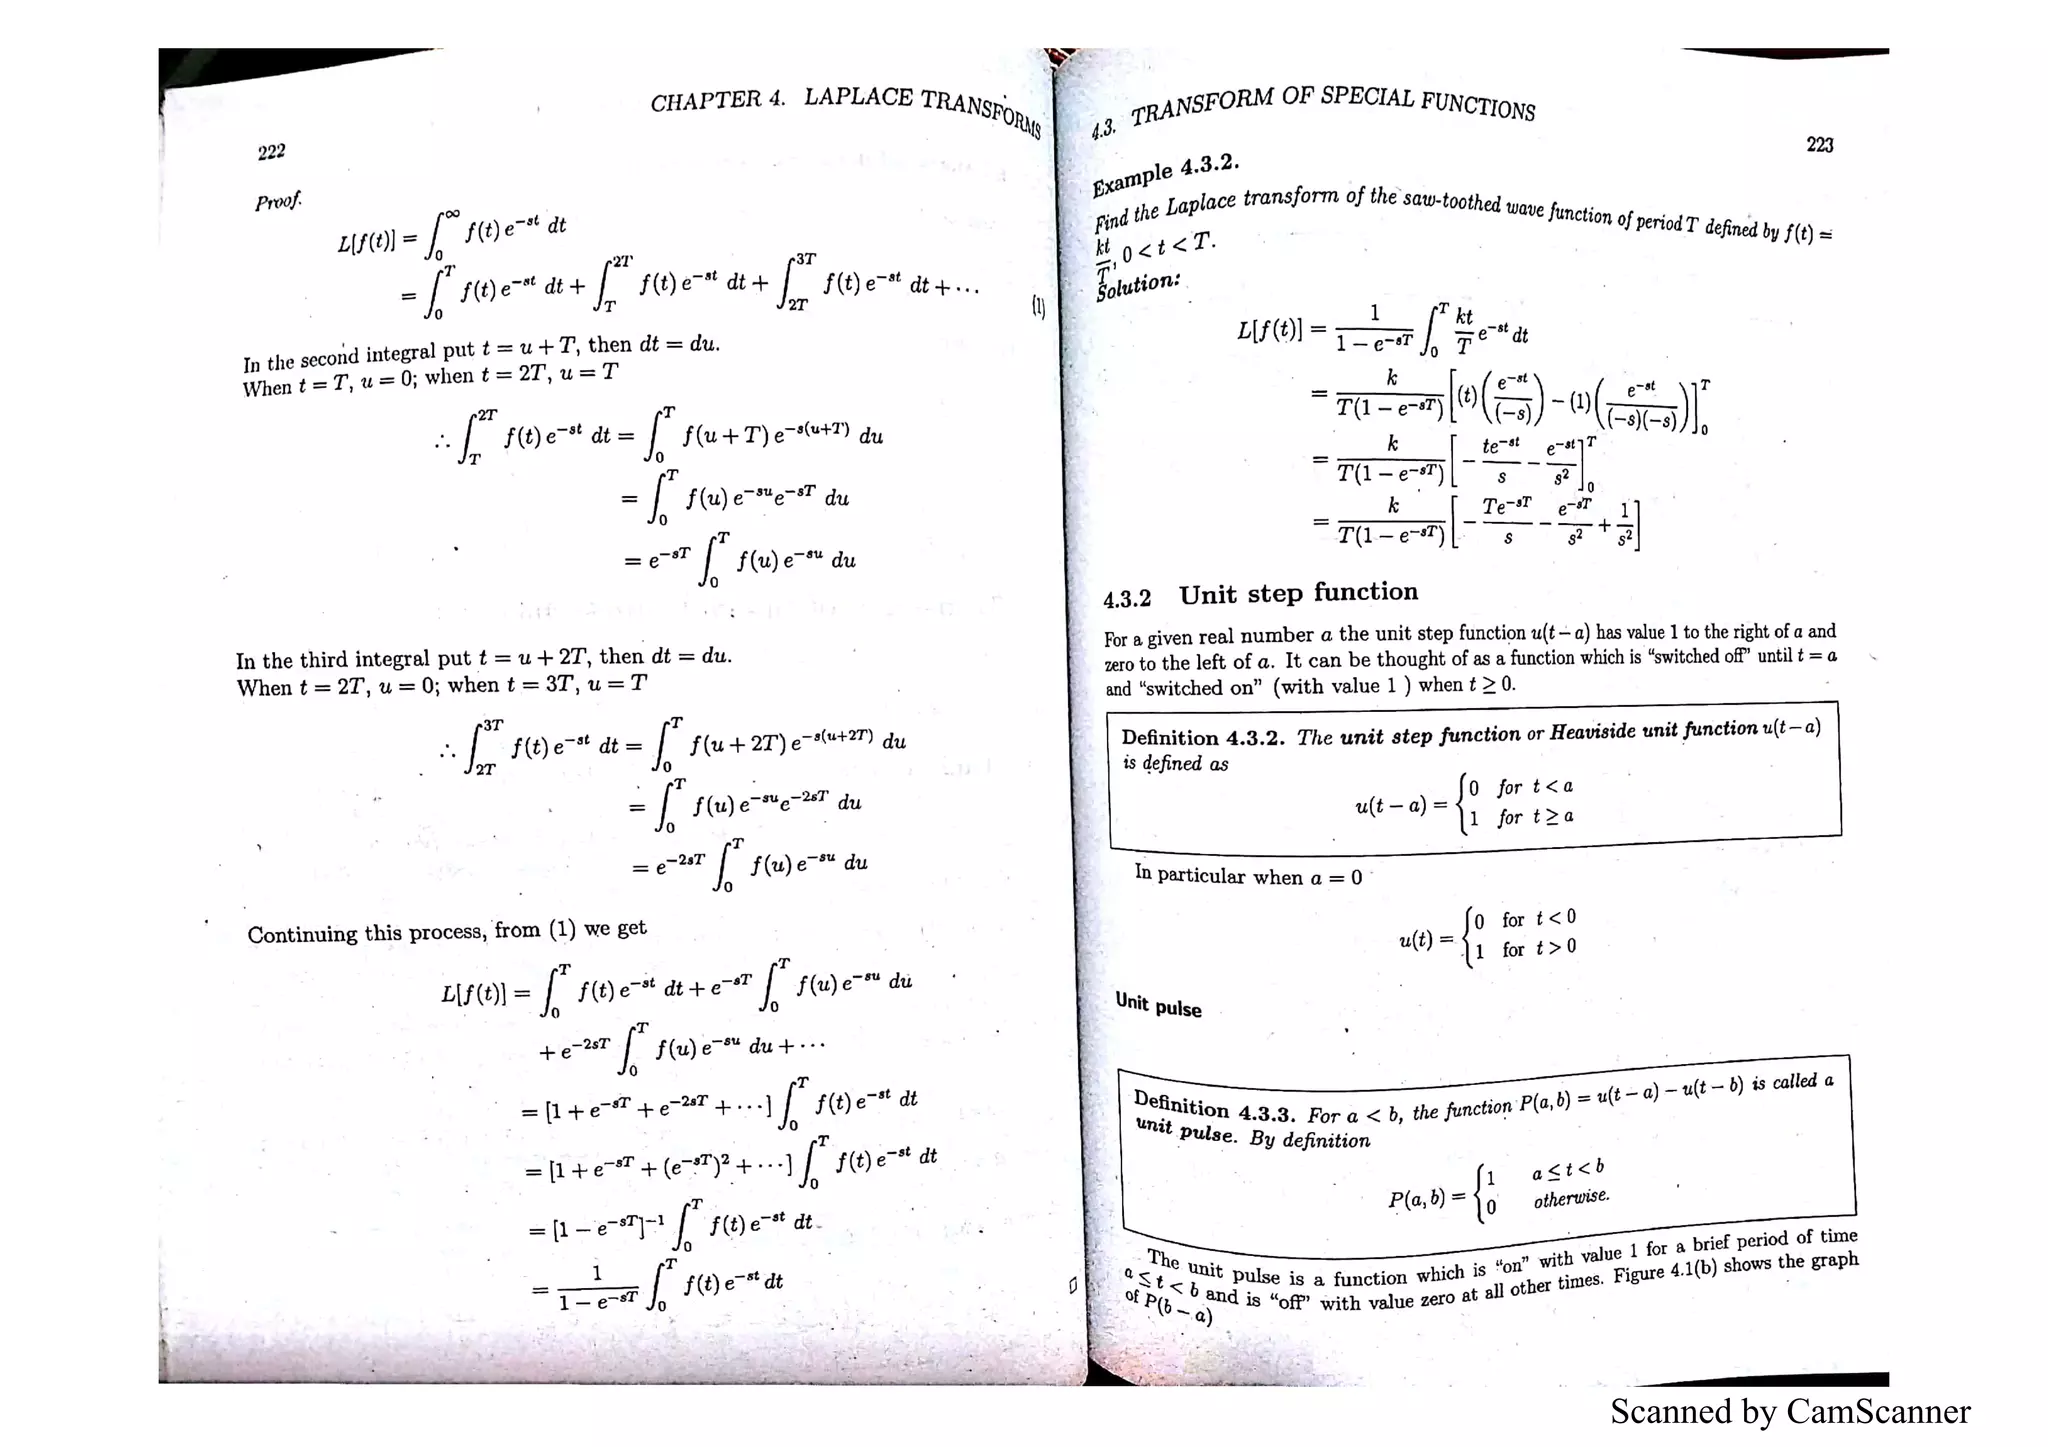 CHAPTER 4. LAPLACE TRANSFORMS
222
Proof.
L[f(t)] = ∫₀^∞ f(t) e^{−st} dt
= ∫₀^T f(t) e^{−st} dt + ∫_T^{2T} f(t) e^{−st} dt + ∫_{2T}^{3T} f(t) e^{−st} dt + ··· (1)
In the second integral put t = u + T, then dt = du.
When t = T, u = 0; when t = 2T, u = T
∴ ∫_T^{2T} f(t) e^{−st} dt = ∫₀^T f(u + T) e^{−s(u+T)} du
= ∫₀^T f(u) e^{−su} e^{−sT} du
= e^{−sT} ∫₀^T f(u) e^{−su} du
In the third integral put t = u + 2T, then dt = du.
When t = 2T, u = 0; when t = 3T, u = T
∴ ∫_{2T}^{3T} f(t) e^{−st} dt = ∫₀^T f(u + 2T) e^{−s(u+2T)} du
= ∫₀^T f(u) e^{−su} e^{−2sT} du
= e^{−2sT} ∫₀^T f(u) e^{−su} du
Continuing this process, from (1) we get
L[f(t)] = ∫₀^T f(t) e^{−st} dt + e^{−sT} ∫₀^T f(u) e^{−su} du
+ e^{−2sT} ∫₀^T f(u) e^{−su} du + ···
= [1 + e^{−sT} + e^{−2sT} + ···] ∫₀^T f(t) e^{−st} dt
= [1 + e^{−sT} + (e^{−sT})² + ···] ∫₀^T f(t) e^{−st} dt
= [1 − e^{−sT}]^{−1} ∫₀^T f(t) e^{−st} dt
= 1/(1 − e^{−sT}) ∫₀^T f(t) e^{−st} dt
4.3. TRANSFORM OF SPECIAL FUNCTIONS
223
Example 4.3.2.
Find the Laplace transform of the saw-toothed wave function of period T defined by f(t) =
kt/T, 0 < t < T.
Solution:
L[f(t)] = 1/(1 − e^{−sT}) ∫₀^T (kt/T) e^{−st} dt
= k/(T(1 − e^{−sT})) [(t)(e^{−st}/(−s)) − (1)(e^{−st}/((−s)(−s)))]₀^T
= k/(T(1 − e^{−sT})) [− te^{−st}/s − e^{−st}/s²]₀^T
= k/(T(1 − e^{−sT})) [− Te^{−sT}/s − e^{−sT}/s² + 1/s²]
4.3.2 Unit step function
For a given real number a the unit step function u(t − a) has value 1 to the right of a and
zero to the left of a. It can be thought of as a function which is “switched off” until t = a
and “switched on” (with value 1 ) when t ≥ 0.
Definition 4.3.2. The unit step function or Heaviside unit function u(t−a)
is defined as
u(t − a) = {0 for t < a
1 for t ≥ a
In particular when a = 0
u(t) = {0 for t < 0
1 for t > 0
Unit pulse
Definition 4.3.3. For a < b, the function P(a, b) = u(t − a) − u(t − b) is called a
unit pulse. By definition
P(a, b) = {1 a ≤ t < b
0 otherwise.
The unit pulse is a function which is “on” with value 1 for a brief period of time
a ≤ t < b and is “off” with value zero at all other times. Figure 4.1(b) shows the graph
of P(b − a)
Scanned by CamScanner